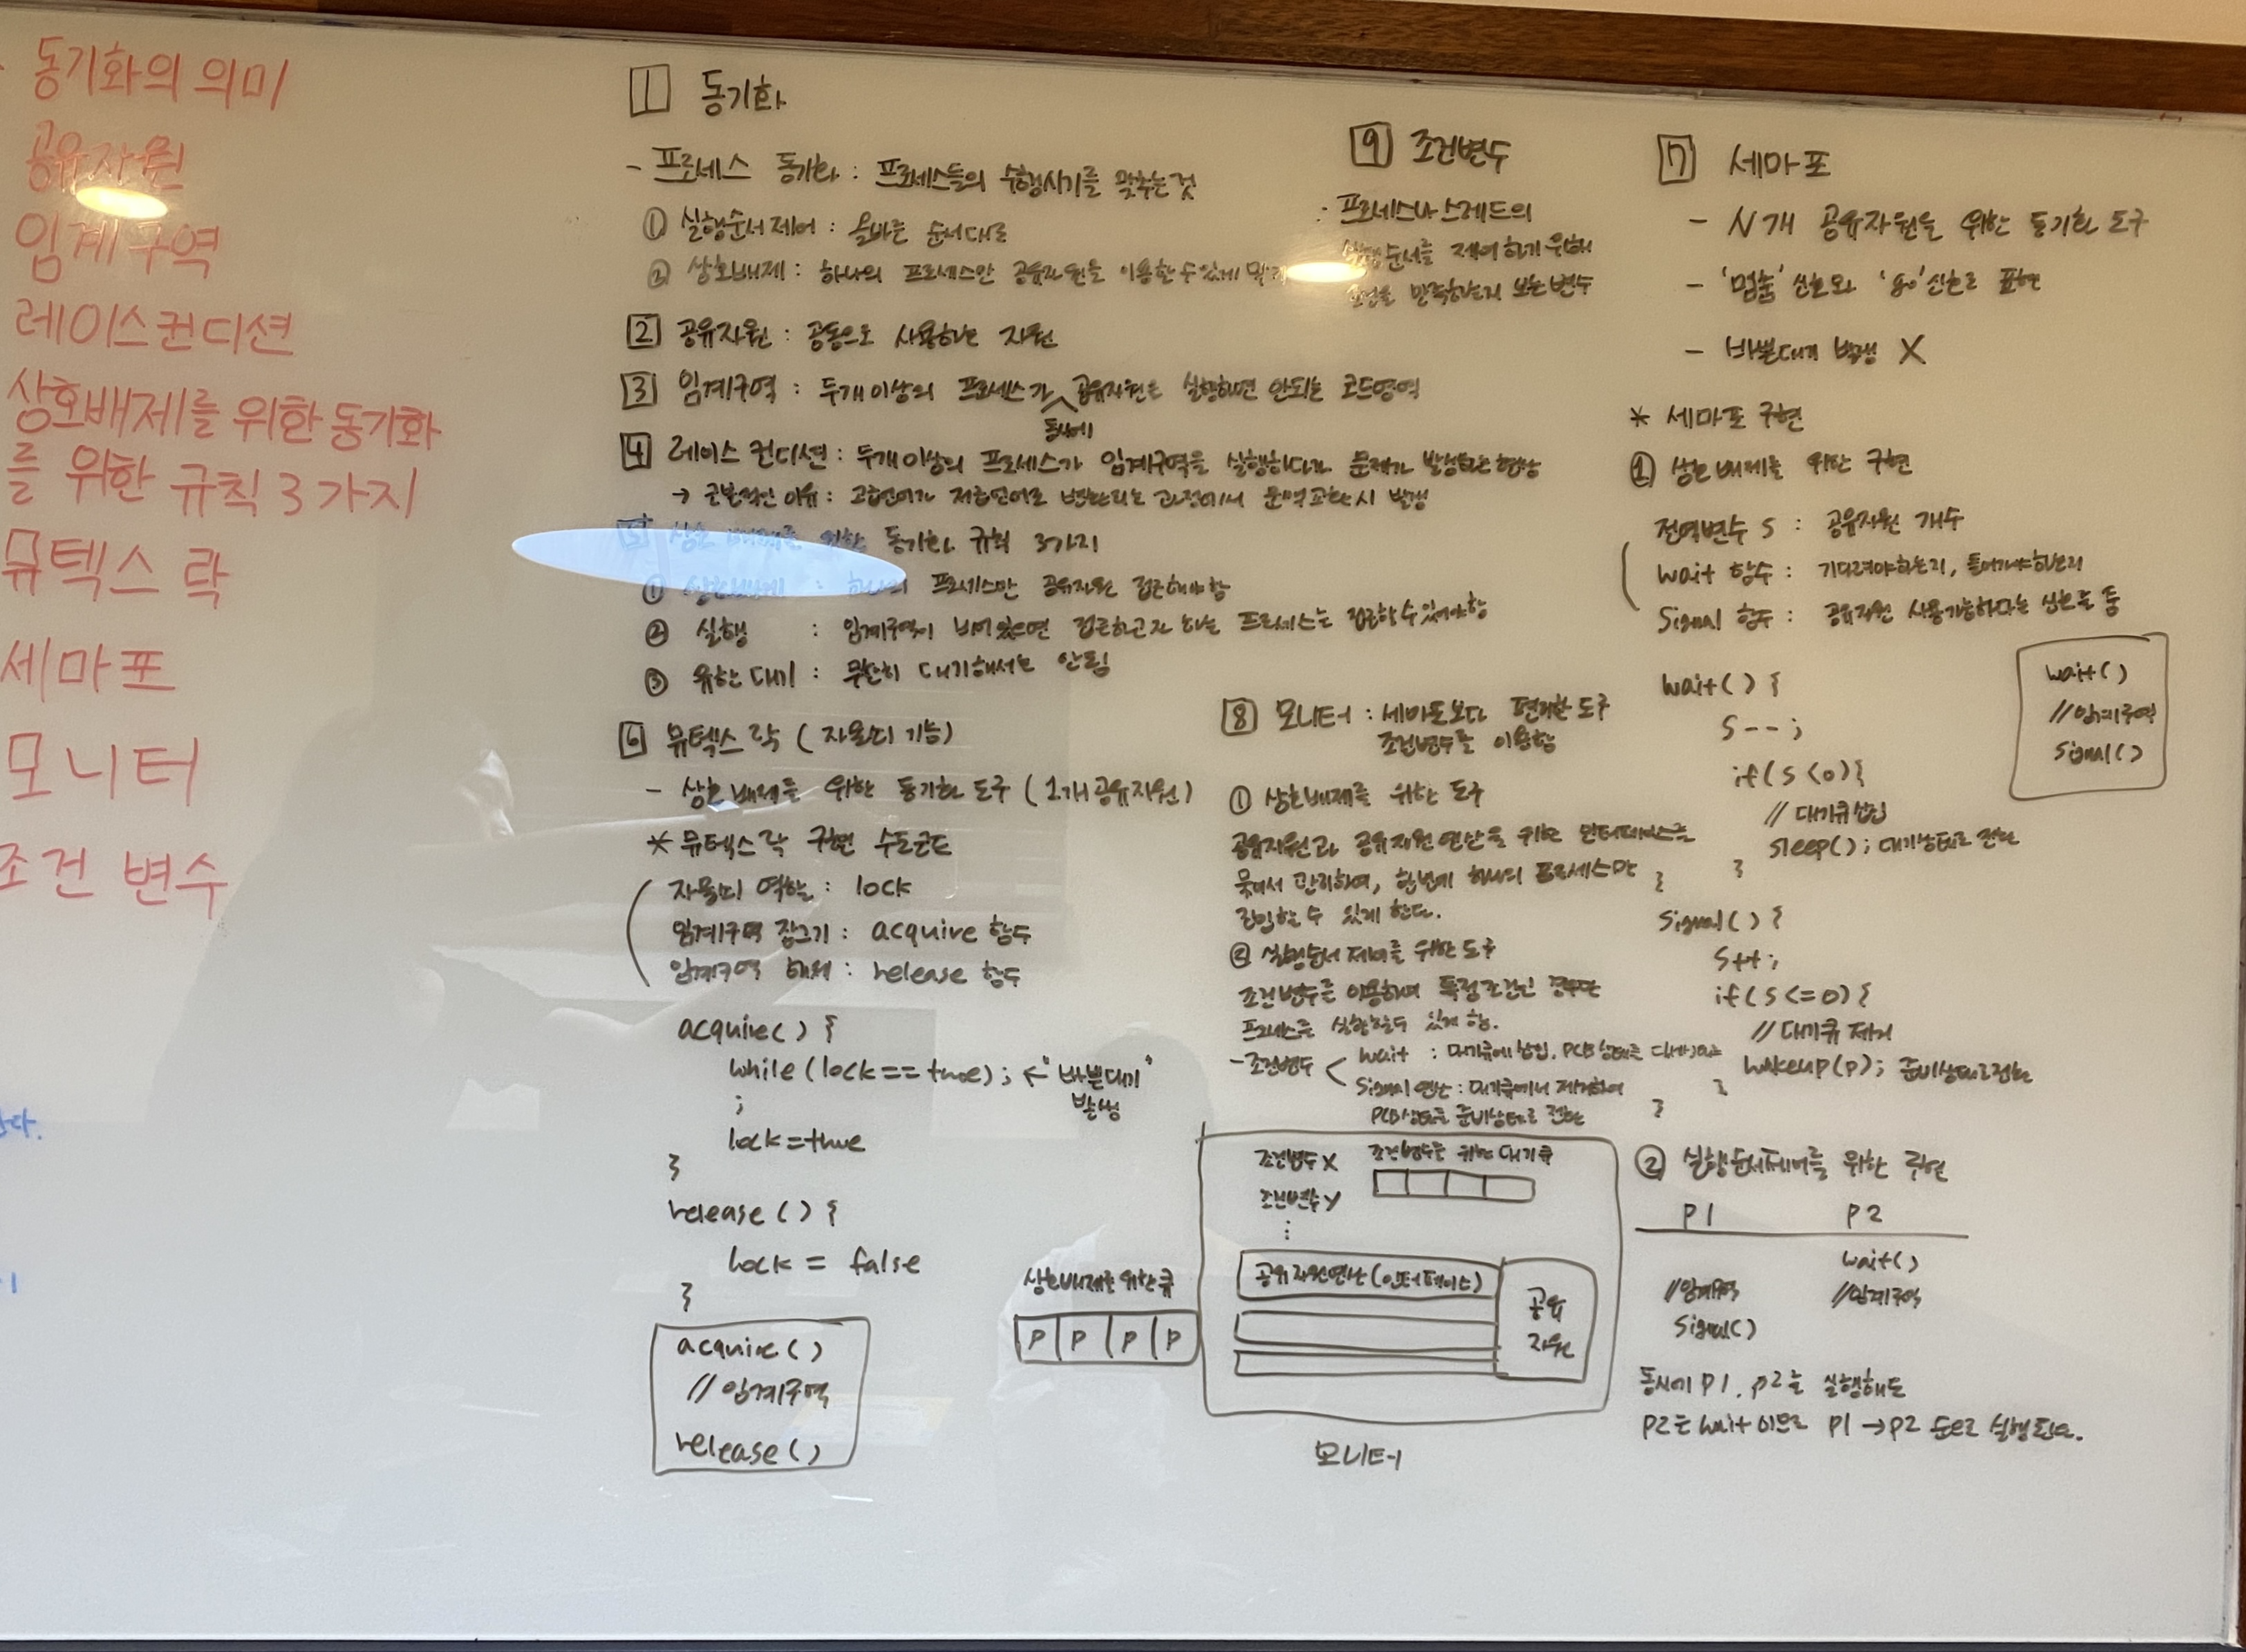 동기화의 의미
공유자원
임계구역
레이스컨디션
상호배제를 위한 동기화
를 위한 규칙 3가지
뮤텍스 락
세마포
모니터
조건 변수
1 동기화
- 프로세스 동기화 : 프로세스들의 수행시기를 맞추는 것
① 실행순서 제어 : 올바른 순서대로
② 상호배제 : 하나의 프로세스만 공유자원을 이용할 수 있게
2 공유자원 : 공동으로 사용하는 자원
3 임계구역 : 두개 이상의 프로세스가 동시에 공유자원을 실행하면 안되는 코드영역
4 레이스 컨디션 : 두개 이상의 프로세스가 임계구역을 실행하다가 문제가 발생하는 현상
→ 근본적인 이유 : 고급언어가 저급언어로 변환되는 과정에서 문맥교환시 발생
5 상호 배제를 위한 동기화 규칙 3가지
① 상호배제 : 하나의 프로세스만 공유자원 접근해야함
② 실행 : 임계구역이 비어있으면 접근하고자 하는 프로세스는 접근할 수 있어야함
③ 유한 대기 : 무한히 대기해서는 안됨
6 뮤텍스 락 ( 자물쇠 기능)
- 상호 배제를 위한 동기화 도구 ( 1개 공유자원)
* 뮤텍스 락 구현 수도코드
자물쇠 역할 : lock
임계구역 잠그기 : acquire 함수
임계구역 해제 : release 함수
acquire() {
while(lock == true); ← "바쁜대기"
발생
;
lock=true
}
release() {
lock = false
}
acquire()
// 임계구역
release()
9 조건변수
: 프로세스나 스레드의
실행순서를 제어하기 위해
조건을 만족하는지 보는 변수
8 모니터 : 세마포보다 편리한 도구
조건변수를 이용함
① 상호배제를 위한 도구
공유자원과 공유자원 연산을 위한 인터페이스를
묶어서 관리하여, 한번에 하나의 프로세스만
진입할 수 있게 한다.
② 실행순서 제어를 위한 도구
조건변수를 이용하여 특정조건인 경우만
프로세스를 실행할수 있게 함.
- 조건변수 < wait : 대기큐에 삽입, PCB 상태를
signal 연산 : 대기큐에서 제거하여
PCB 상태를 준비상태로 전환
조건변수 X 조건변수를 위한 대기큐
조건변수 Y
⋮
공유자원연산(인터페이스)
공유
자원
상호배제를 위한 큐
P P P P
모니터
7 세마포
- N개 공유자원을 위한 동기화 도구
- '멈춤' 신호와 'go' 신호로 표현
- 바쁜대기 발생 X
* 세마포 구현
① 상호배제를 위한 구현
전역변수 S : 공유자원 개수
wait 함수 : 기다려야하는지, 들어가야하는지
Signal 함수 : 공유자원 사용가능하다는 신호를 줌
wait() {
S--;
if(S<0){
// 대기큐 삽입
sleep(); 대기상태로 전환
}
}
wait()
//임계구역
signal()
signal() {
S++;
if(S<=0){
// 대기큐 제거
wakeup(p); 준비상태로 전환
}
}
② 실행순서제어를 위한 구현
P1 P2
wait()
//임계구역 //임계구역
signal()
동시에 P1, P2를 실행해도
P2는 wait 이므로 P1 → P2 순으로 실행된다.